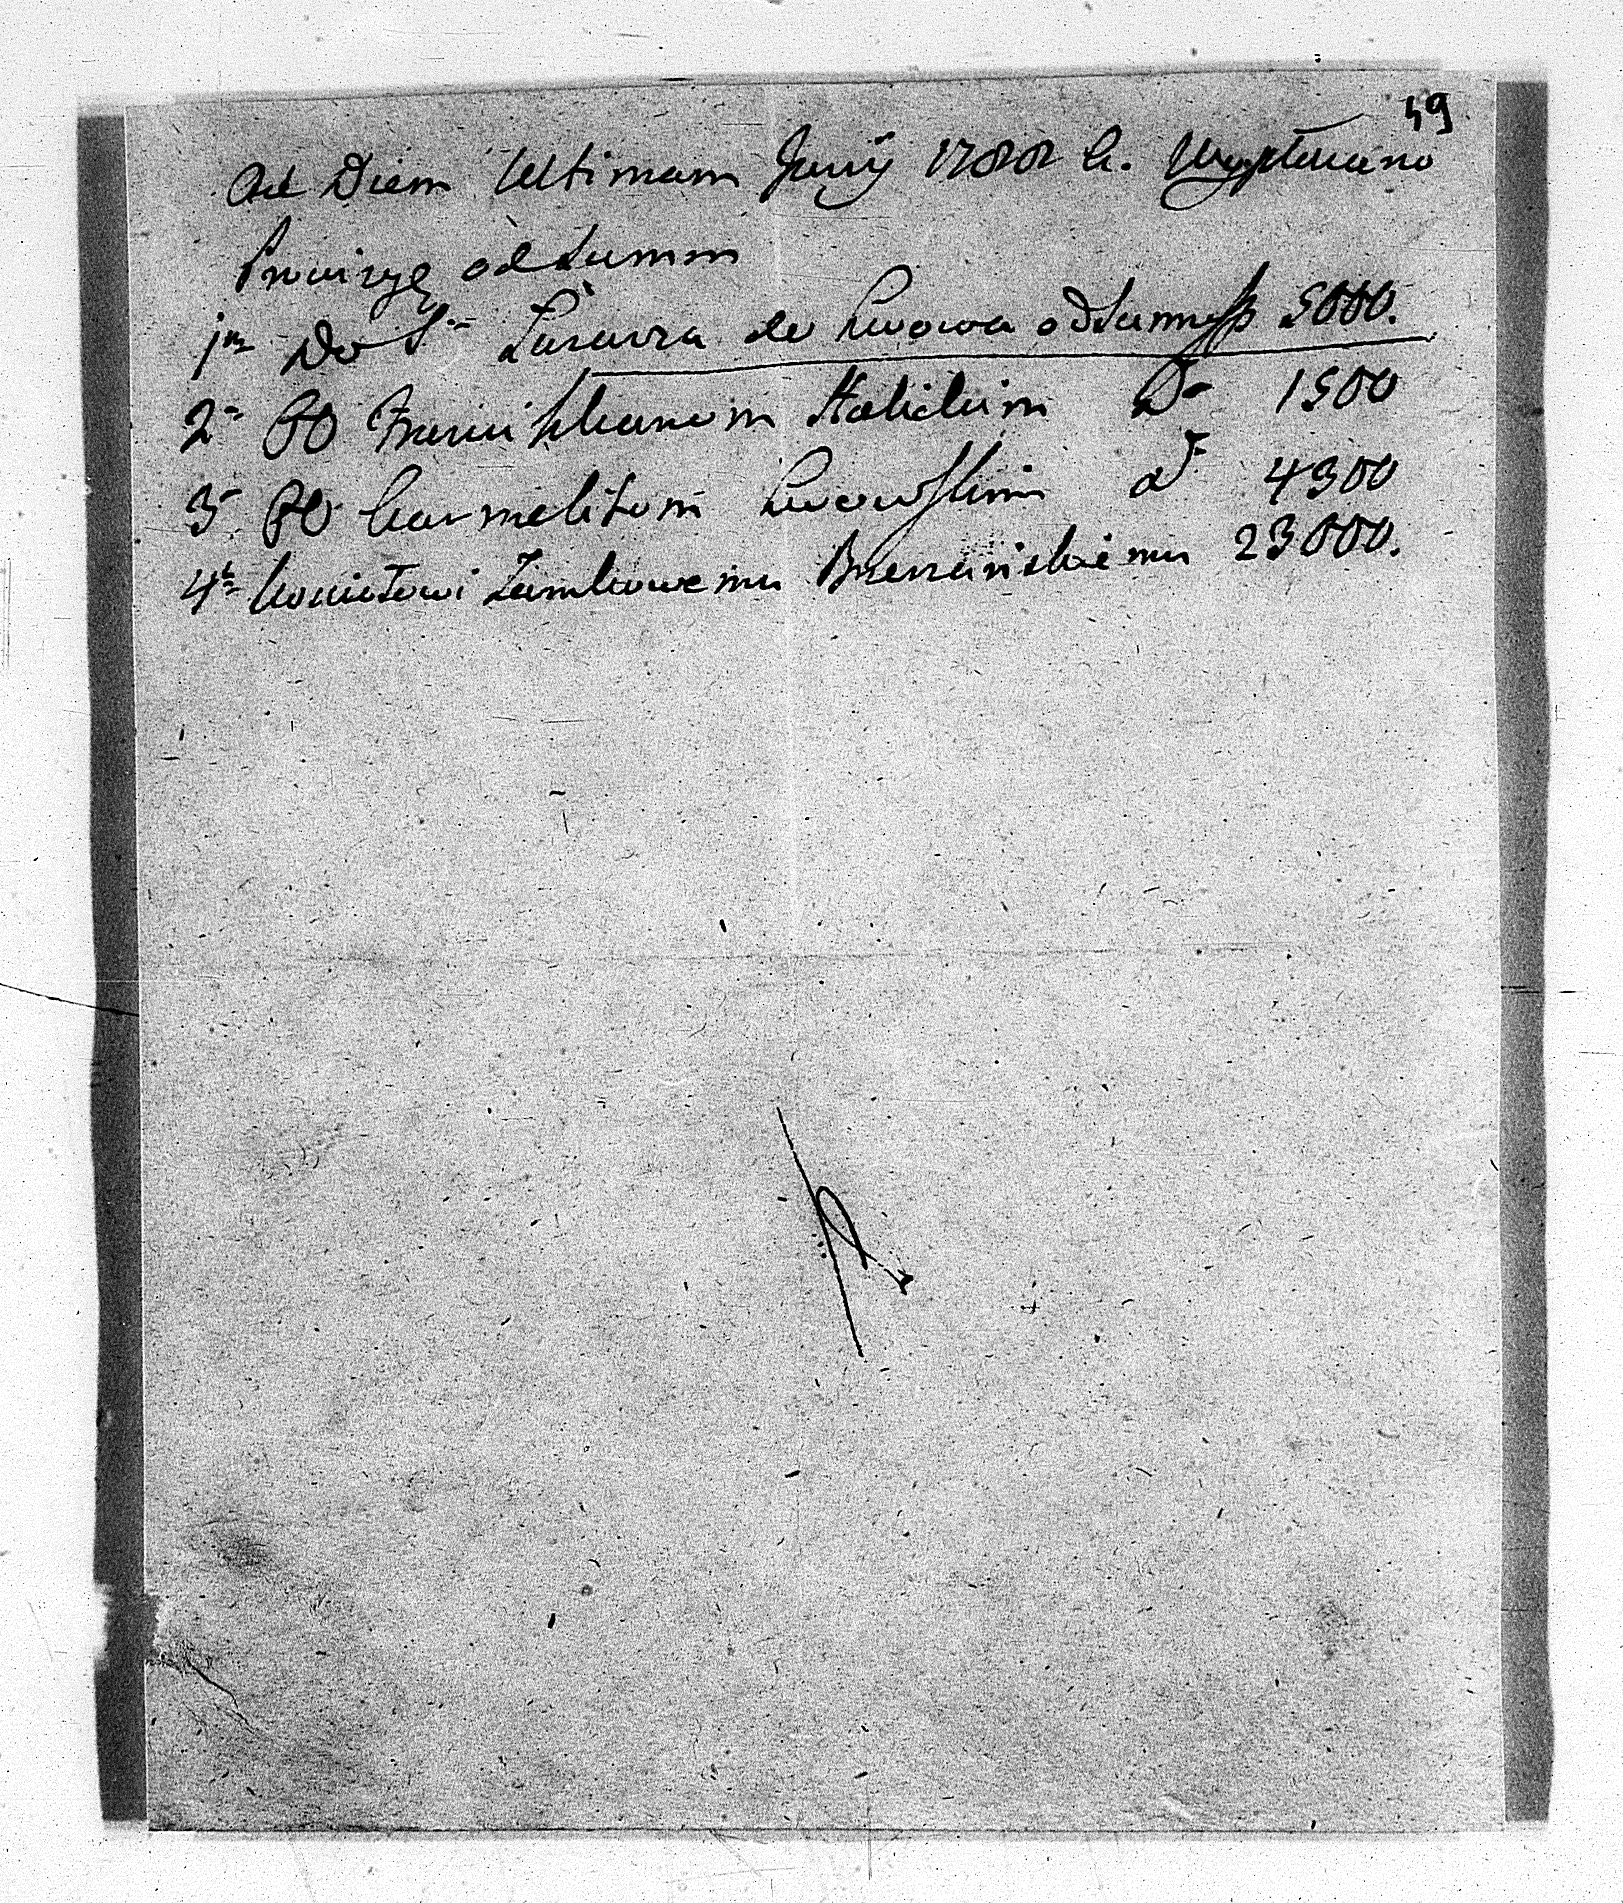 49
Ad Diem Ultimam Junij 1788 A. Wypłacono
Prowizyę od Summ
1mo Do Sgo Łazarza do Lwowa od Summy 5000.
2do OO Franciszkanom Halickim Do 1500
3o OO Karmelitom Lwowskim do 4300
4to Kościołowi Zamkowemu Brzezańskiemu 23000.